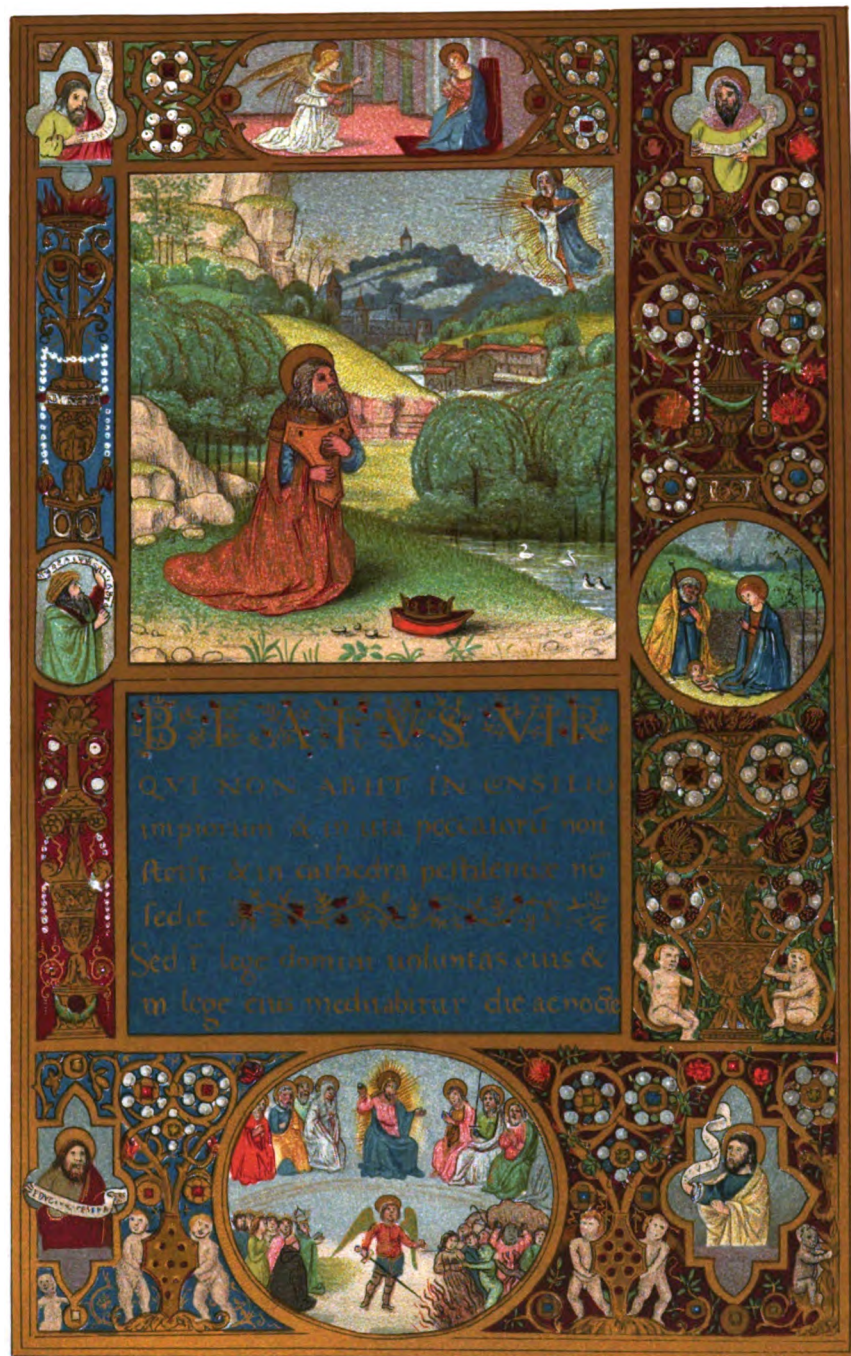 BEATVS VIR
QVI NON ABIIT IN ENSILIO
impiorum & in uia peccatorū non
stetit & in cathedra pestilentiæ nō
sedit
Sed ī lege domini uoluntas eius &
in lege eius meditabitur die ac nocte